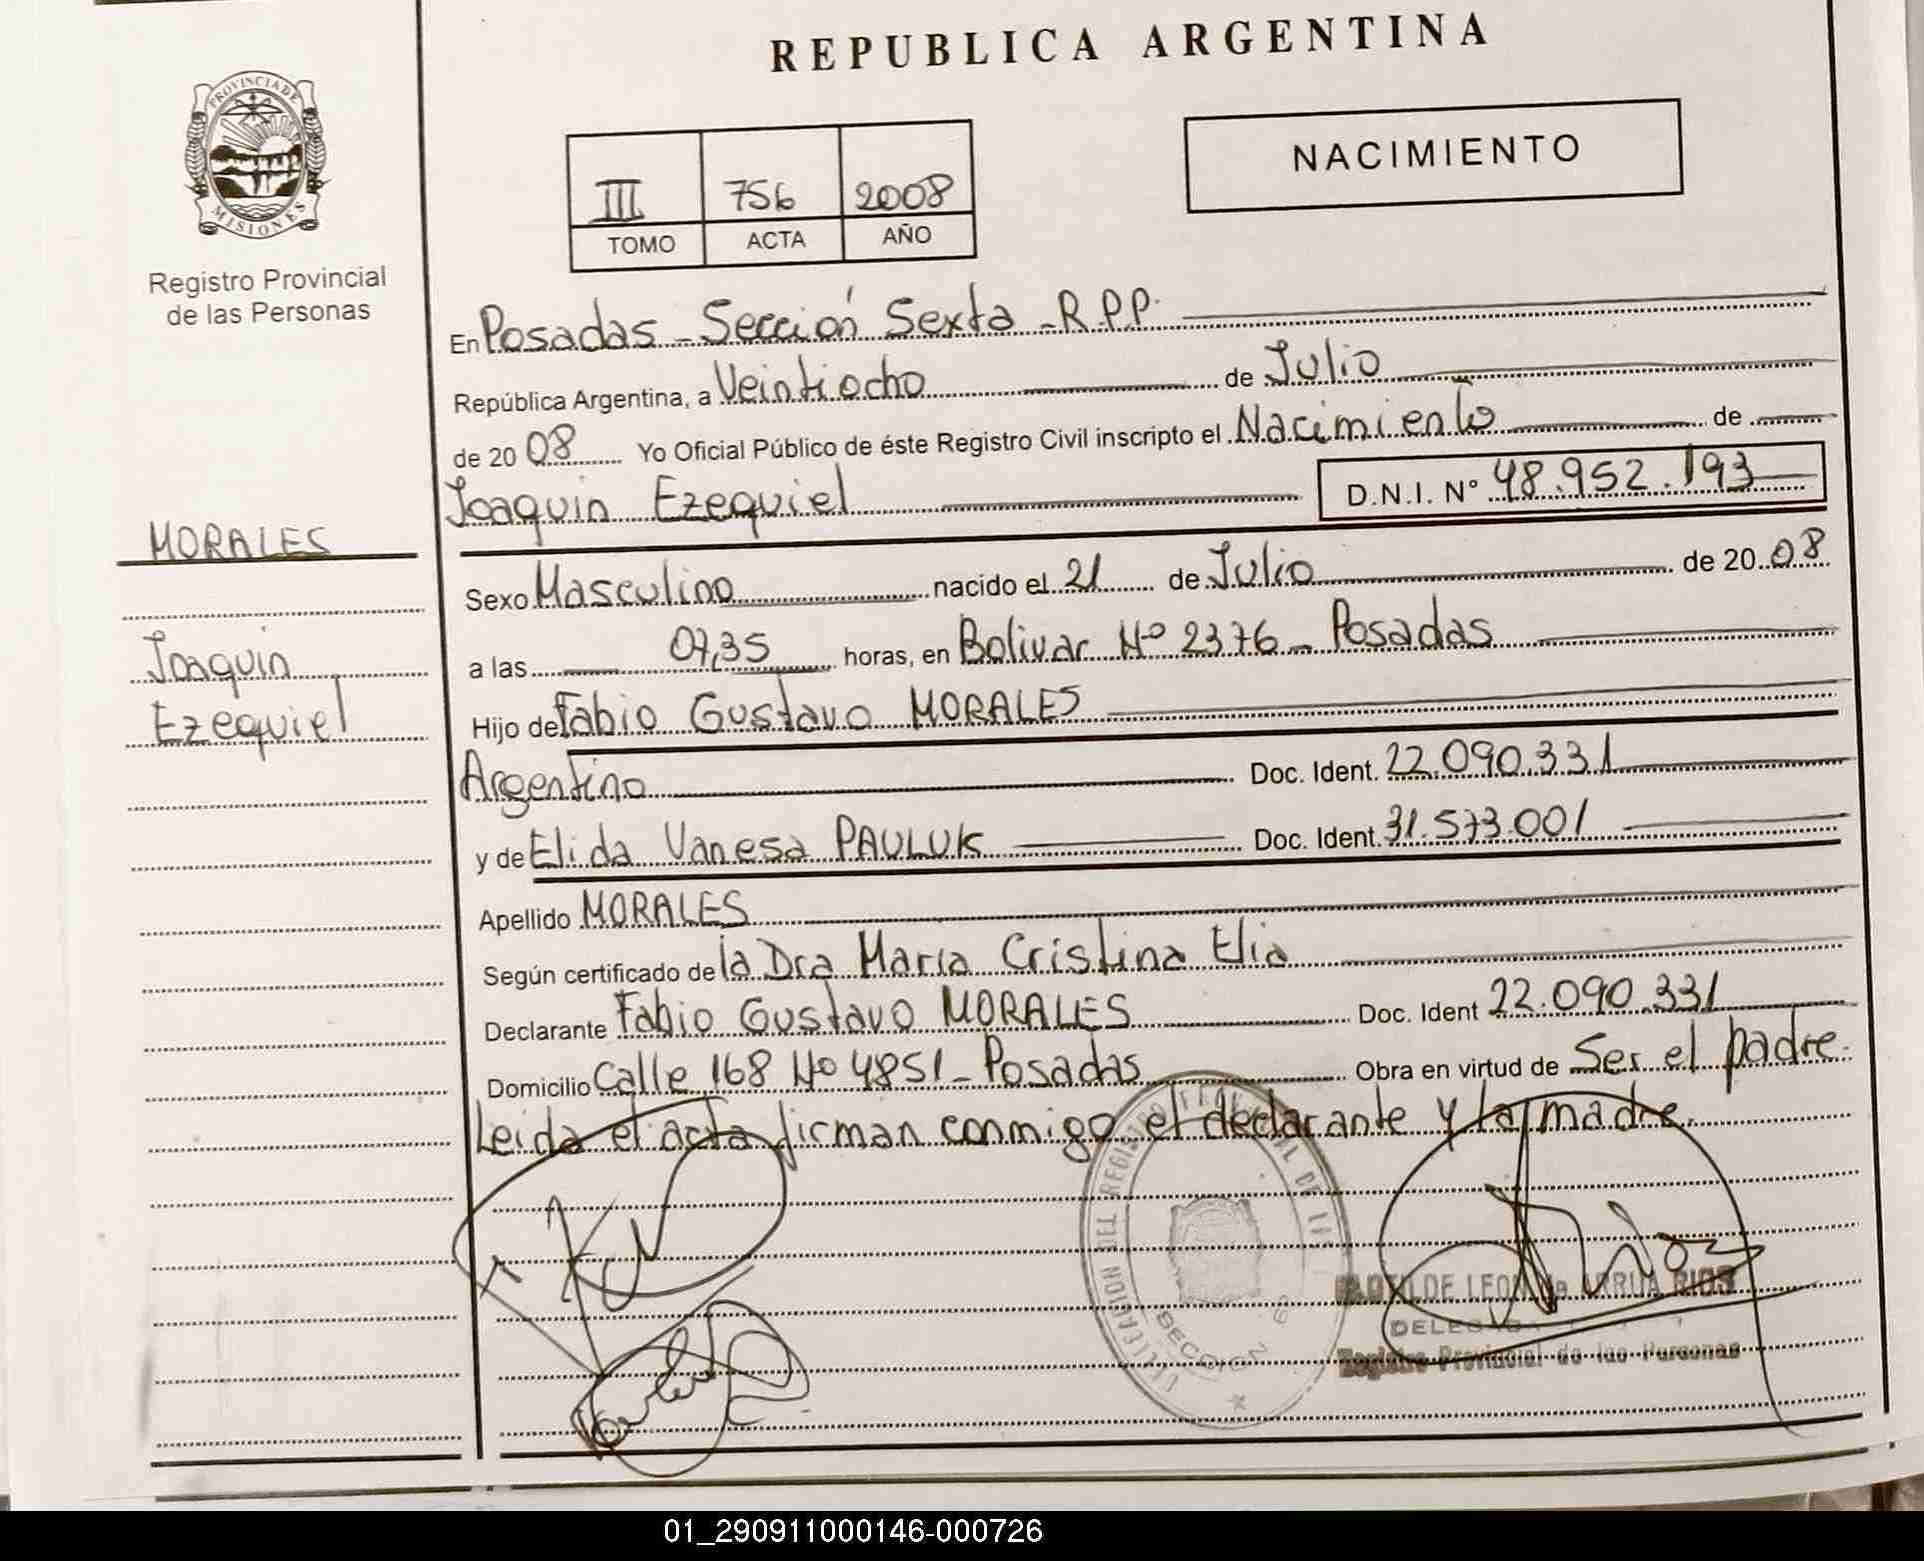 REPUBLICA ARGENTINA
PROVINCIA DE
MISIONES
Registro Provincial
de las Personas
NACIMIENTO
III 756 2008
TOMO ACTA AÑO
En Posadas - Sección Sexta - R.P.P.
República Argentina, a Veintiocho de Julio
de 20 08 Yo Oficial Público de éste Registro Civil inscripto el Nacimiento de
Joaquin Ezequiel D.N.I. N° 48.952.193
MORALES
Joaquin
Ezequiel
Sexo Masculino nacido el 21 de Julio de 20 08
a las 07,35 horas, en Bolivar Nº 2376 - Posadas
Hijo de Fabio Gustavo MORALES
Argentino Doc. Ident. 22.090.331
y de Elida Vanesa PAULUK Doc. Ident. 31.573.001
Apellido MORALES
Según certificado de la Dra Maria Cristina Elia
Declarante Fabio Gustavo MORALES Doc. Ident 22.090.331
Domicilio Calle 168 No 4851 - Posadas Obra en virtud de Ser el padre.
Leida el acta firman conmigo el declarante y la madre.
DEL REGISTRO
SECCION
LEON de ARRUA RIOS
DELEGADA
Registro Provincial de las Personas
01_290911000146-000726